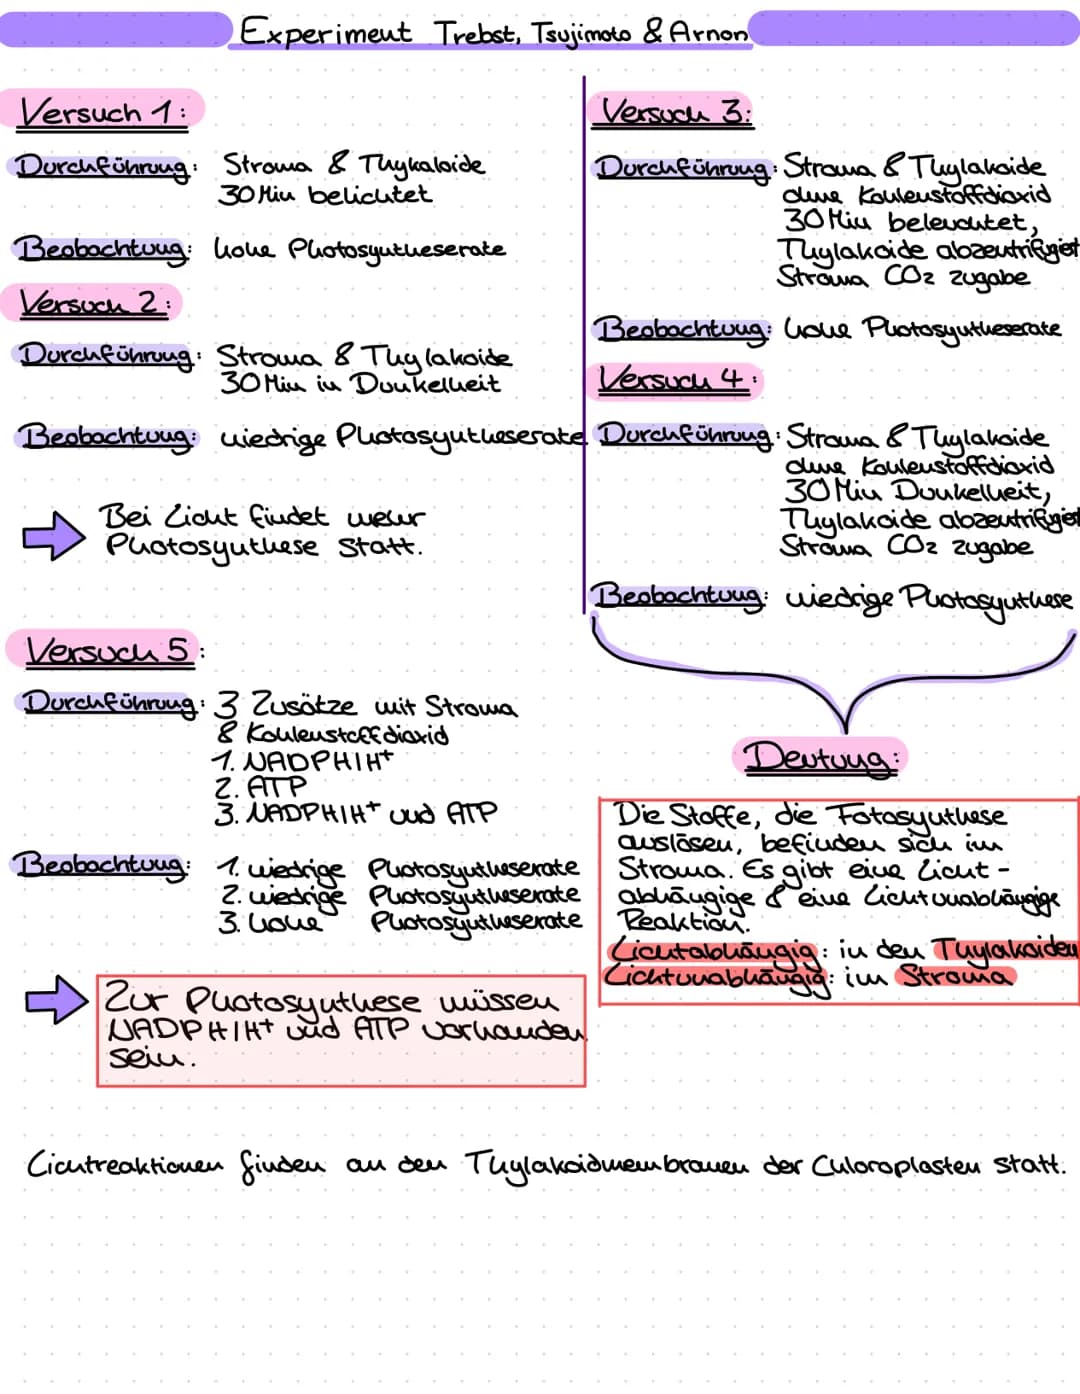 Experiment Trebst, Tsujimoto & Arnon
Versuch 1:
Durchführung: Stroma & Thykaloide
30 Min belichtet
Beobachtung: hohe Photosyntheserate
Versuch 2:
Durchführung: Stroma & Thylakoide
30 Min in Dunkelheit
Beobachtung: niedrige Photosyntheserate
Bei Licht findet mehr
Photosynthese statt.
Versuch 3:
Durchführung: Stroma & Thylakoide
ohne Kohlenstoffdioxid
30 Min beleuchtet,
Thylakoide abzentrifugiert
Stroma CO2 zugabe
Beobachtung: hohe Photosyntheserate
Versuch 4:
Durchführung: Stroma & Thylakoide
ohne Kohlenstoffdioxid
30 Min Dunkelheit,
Thylakoide abzentrifugiert
Stroma CO2 zugabe
Beobachtung: niedrige Photosynthese
Versuch 5:
Durchführung: 3 Zusätze mit Stroma
& Kohlenstoffdioxid
1. NADPH|H+
2. ATP
3. NADPH|H+ und ATP
Beobachtung: 1. niedrige Photosyntheserate
2. niedrige Photosyntheserate
3. hohe Photosyntheserate
Zur Photosynthese müssen
NADPH|H+ und ATP vorhanden
sein.
Deutung:
Die Stoffe, die Fotosynthese
auslösen, befinden sich im
Stroma. Es gibt eine Licht-
abhängige & eine Lichtunabhängige
Reaktion.
Lichtabhängig: in den Thylakoiden
Lichtunabhängig: im Stroma
Lichtreaktionen finden an den Thylakoidmembranen der Chloroplasten statt.